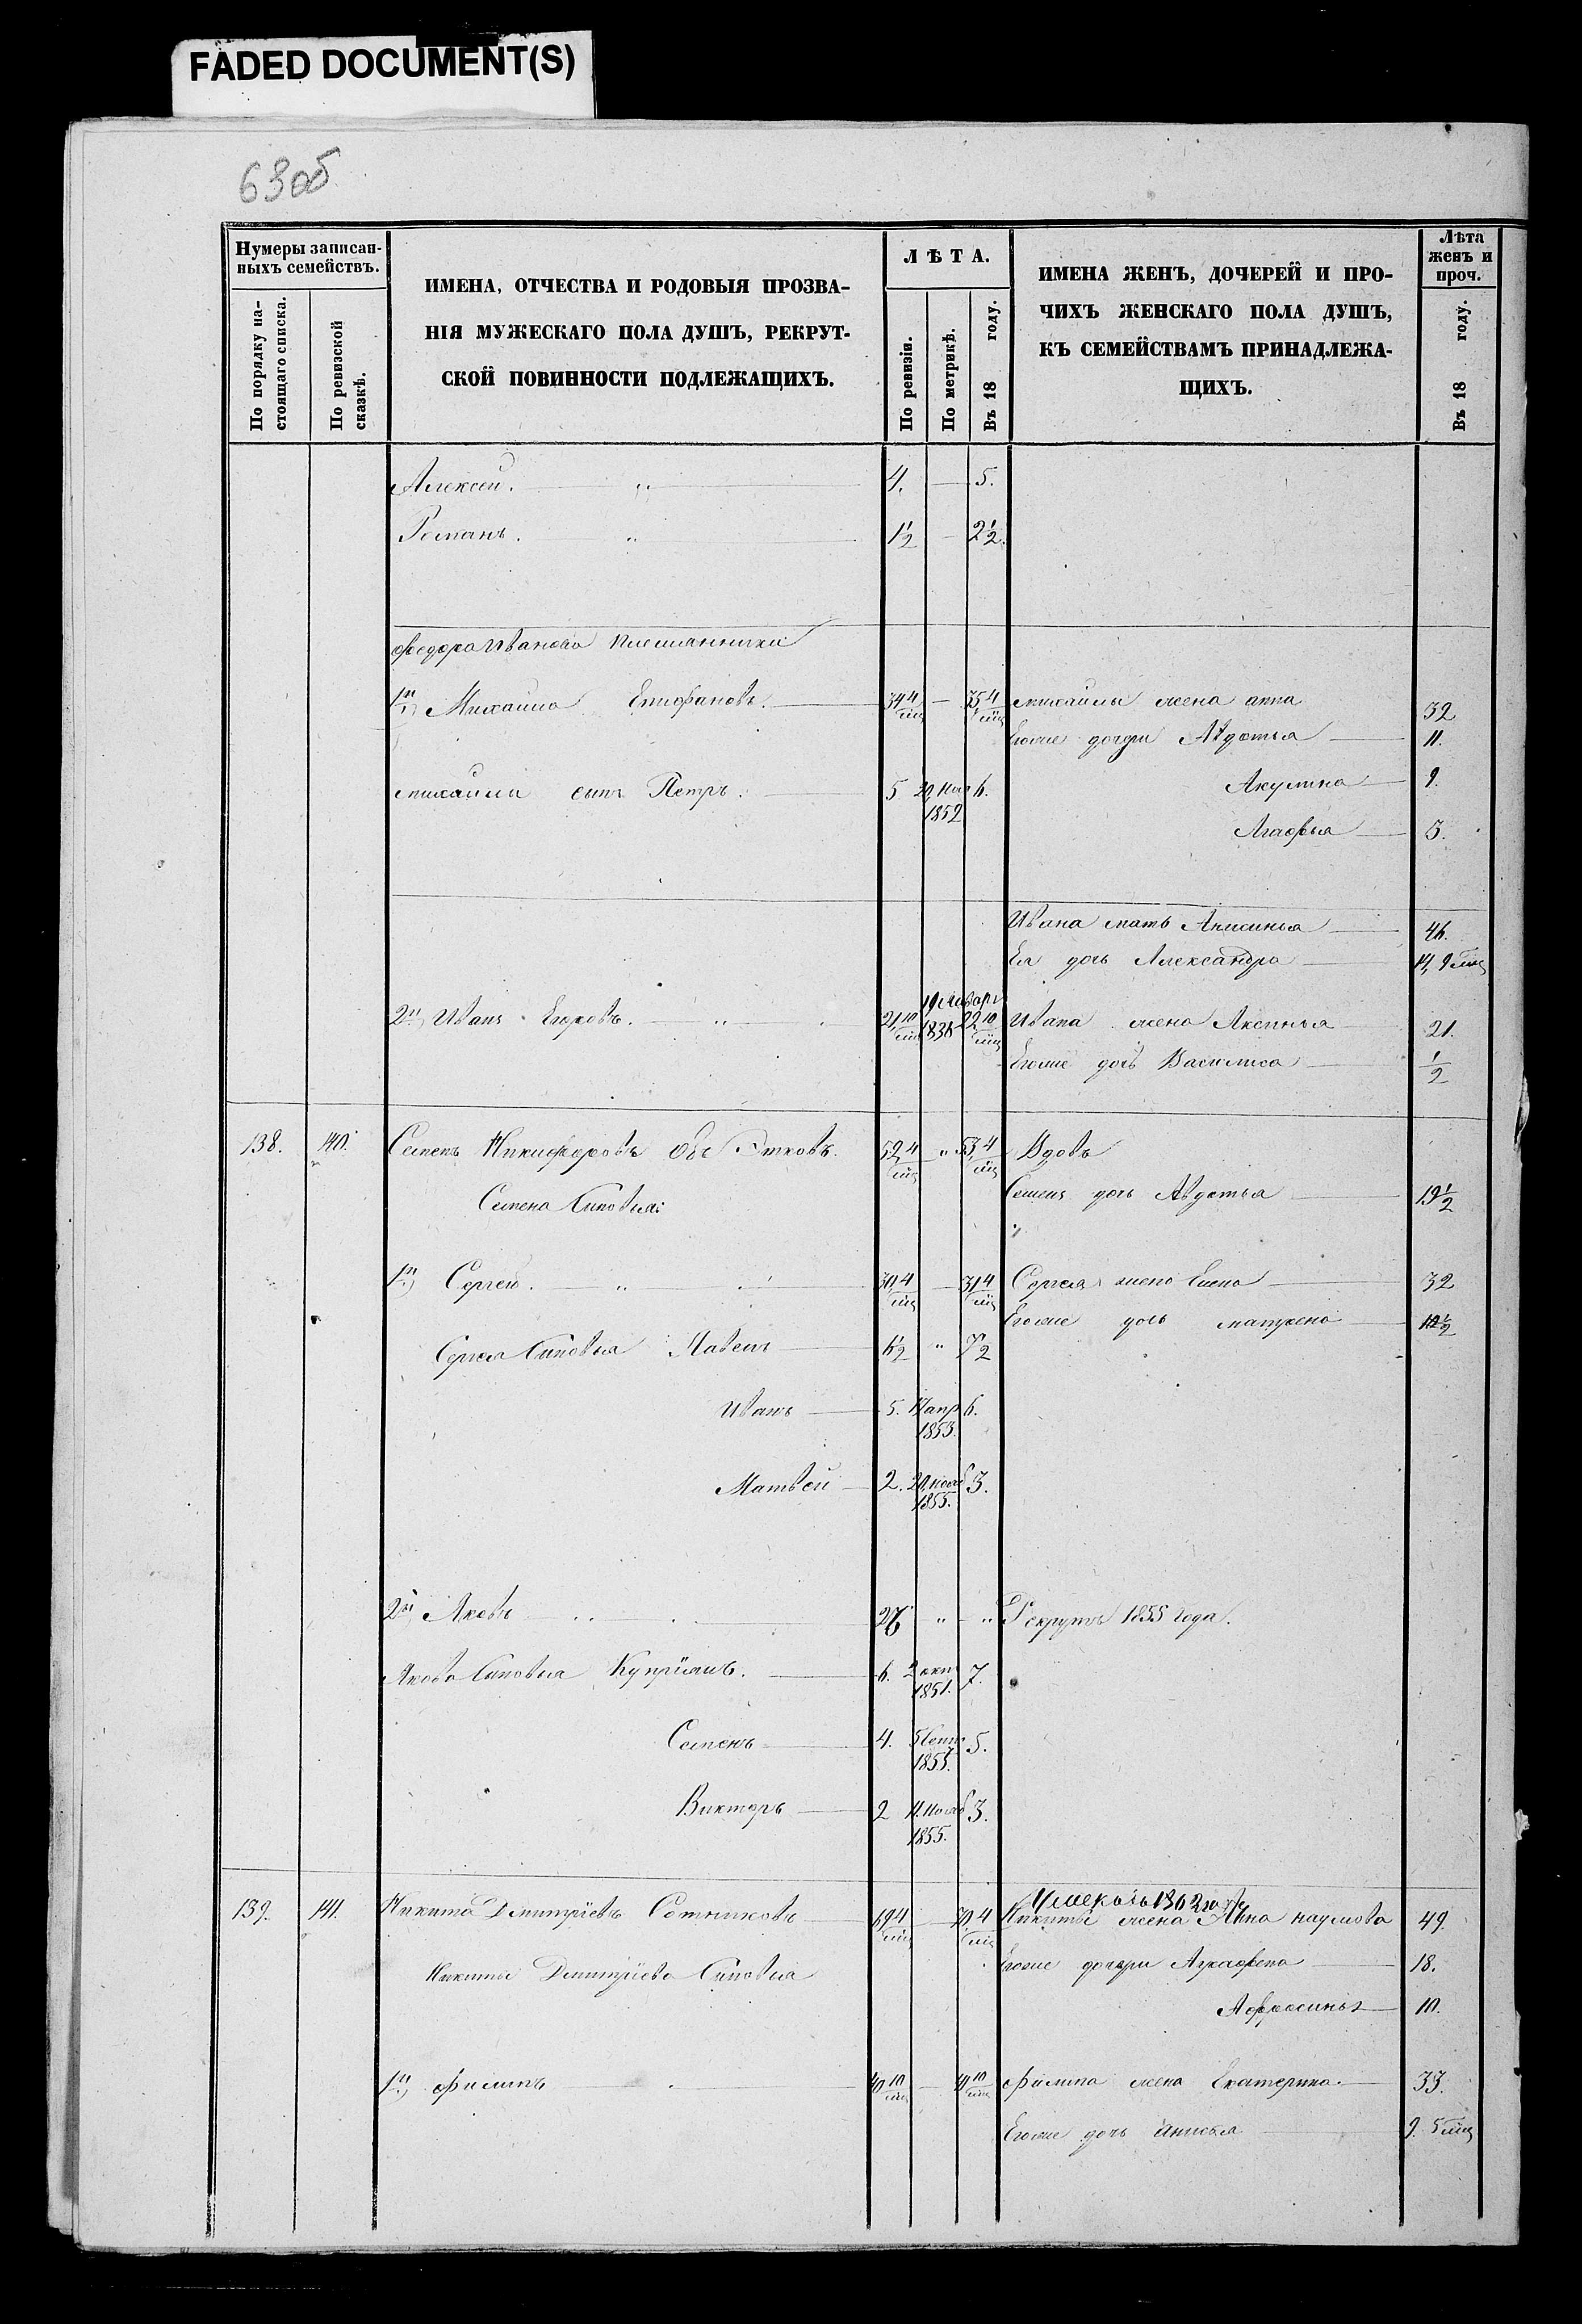 FADED DOCUMENT(S)
63об
Нумеры записан-
ныхъ семействъ.
По порядку на-
стоящаго списка.
По ревизской
сказкѣ.
ИМЕНА, ОТЧЕСТВА И РОДОВЫЯ ПРОЗВА-
НІЯ МУЖЕСКАГО ПОЛА ДУШЪ, РЕКРУТ-
СКОЙ ПОВИННОСТИ ПОДЛЕЖАЩИХЪ.
ЛѢТА.
По ревизіи.
По метрикѣ.
Въ 18 году.
ИМЕНА ЖЕНЪ, ДОЧЕРЕЙ И ПРО-
ЧИХЪ ЖЕНСКАГО ПОЛА ДУШЪ,
КЪ СЕМЕЙСТВАМЪ ПРИНАДЛЕЖА-
ЩИХЪ.
Лѣта
женъ и
проч.
Въ 18 году.
Алексей. 4. 5.
Романъ. 1½ 2½.
Федора Иванова племянники
1й Михаила Епифановъ. 34 4/мц 35 4/мц Михаилы жена анна 32
Егоже дочери Авдотья 11.
михаили сынъ Петръ. 5 1852 6. Акулина 9.
Агафья 3.
Ивана мать Анисинья 46.
Ея дочь Александра 14, 9 мц
2й Иванъ Егоровъ. 21, 10/мц 19 Января 22 10/мц Ивана жена Аксинья 21.
Егоже дочь Василиса ½
138. 140. Семенъ Никифоровъ 52, 4/мц " 53, 4/мц Вдовъ
Семена Сыновья: Семена дочь Авдотья 19½
1й) Сергей. 30, 4/мц 31, 4/мц Сергея жена Елена 32
Егоже дочь матрена
Сергея Сыновья Павелъ 6½ " 7½
Иванъ 5. 17 апр 1853. 6.
Матвей 2. 20. нояб 1855. 3.
2й Яковъ " " Рекрутъ 1855 года.
Якова Сыновья Купріянъ. 6. 2 окт 1851. 7.
Семенъ 4. 5 Сент 5.
Викторъ 2 11. Нояб 1855. 3.
139. 141. Никита Дмитріевъ Сотниковъ 69 4/мц 70 4/мц Никиты жена Анна наумова 49.
Никиты Дмитріева Сыновья Егоже дочери Аграфена 18.
Афросинья 10.
1й) Филипъ 40 10/мц 41 10/мц Филипа жена Екатерина. 33.
Егоже дочь анисья 9. 5 мц